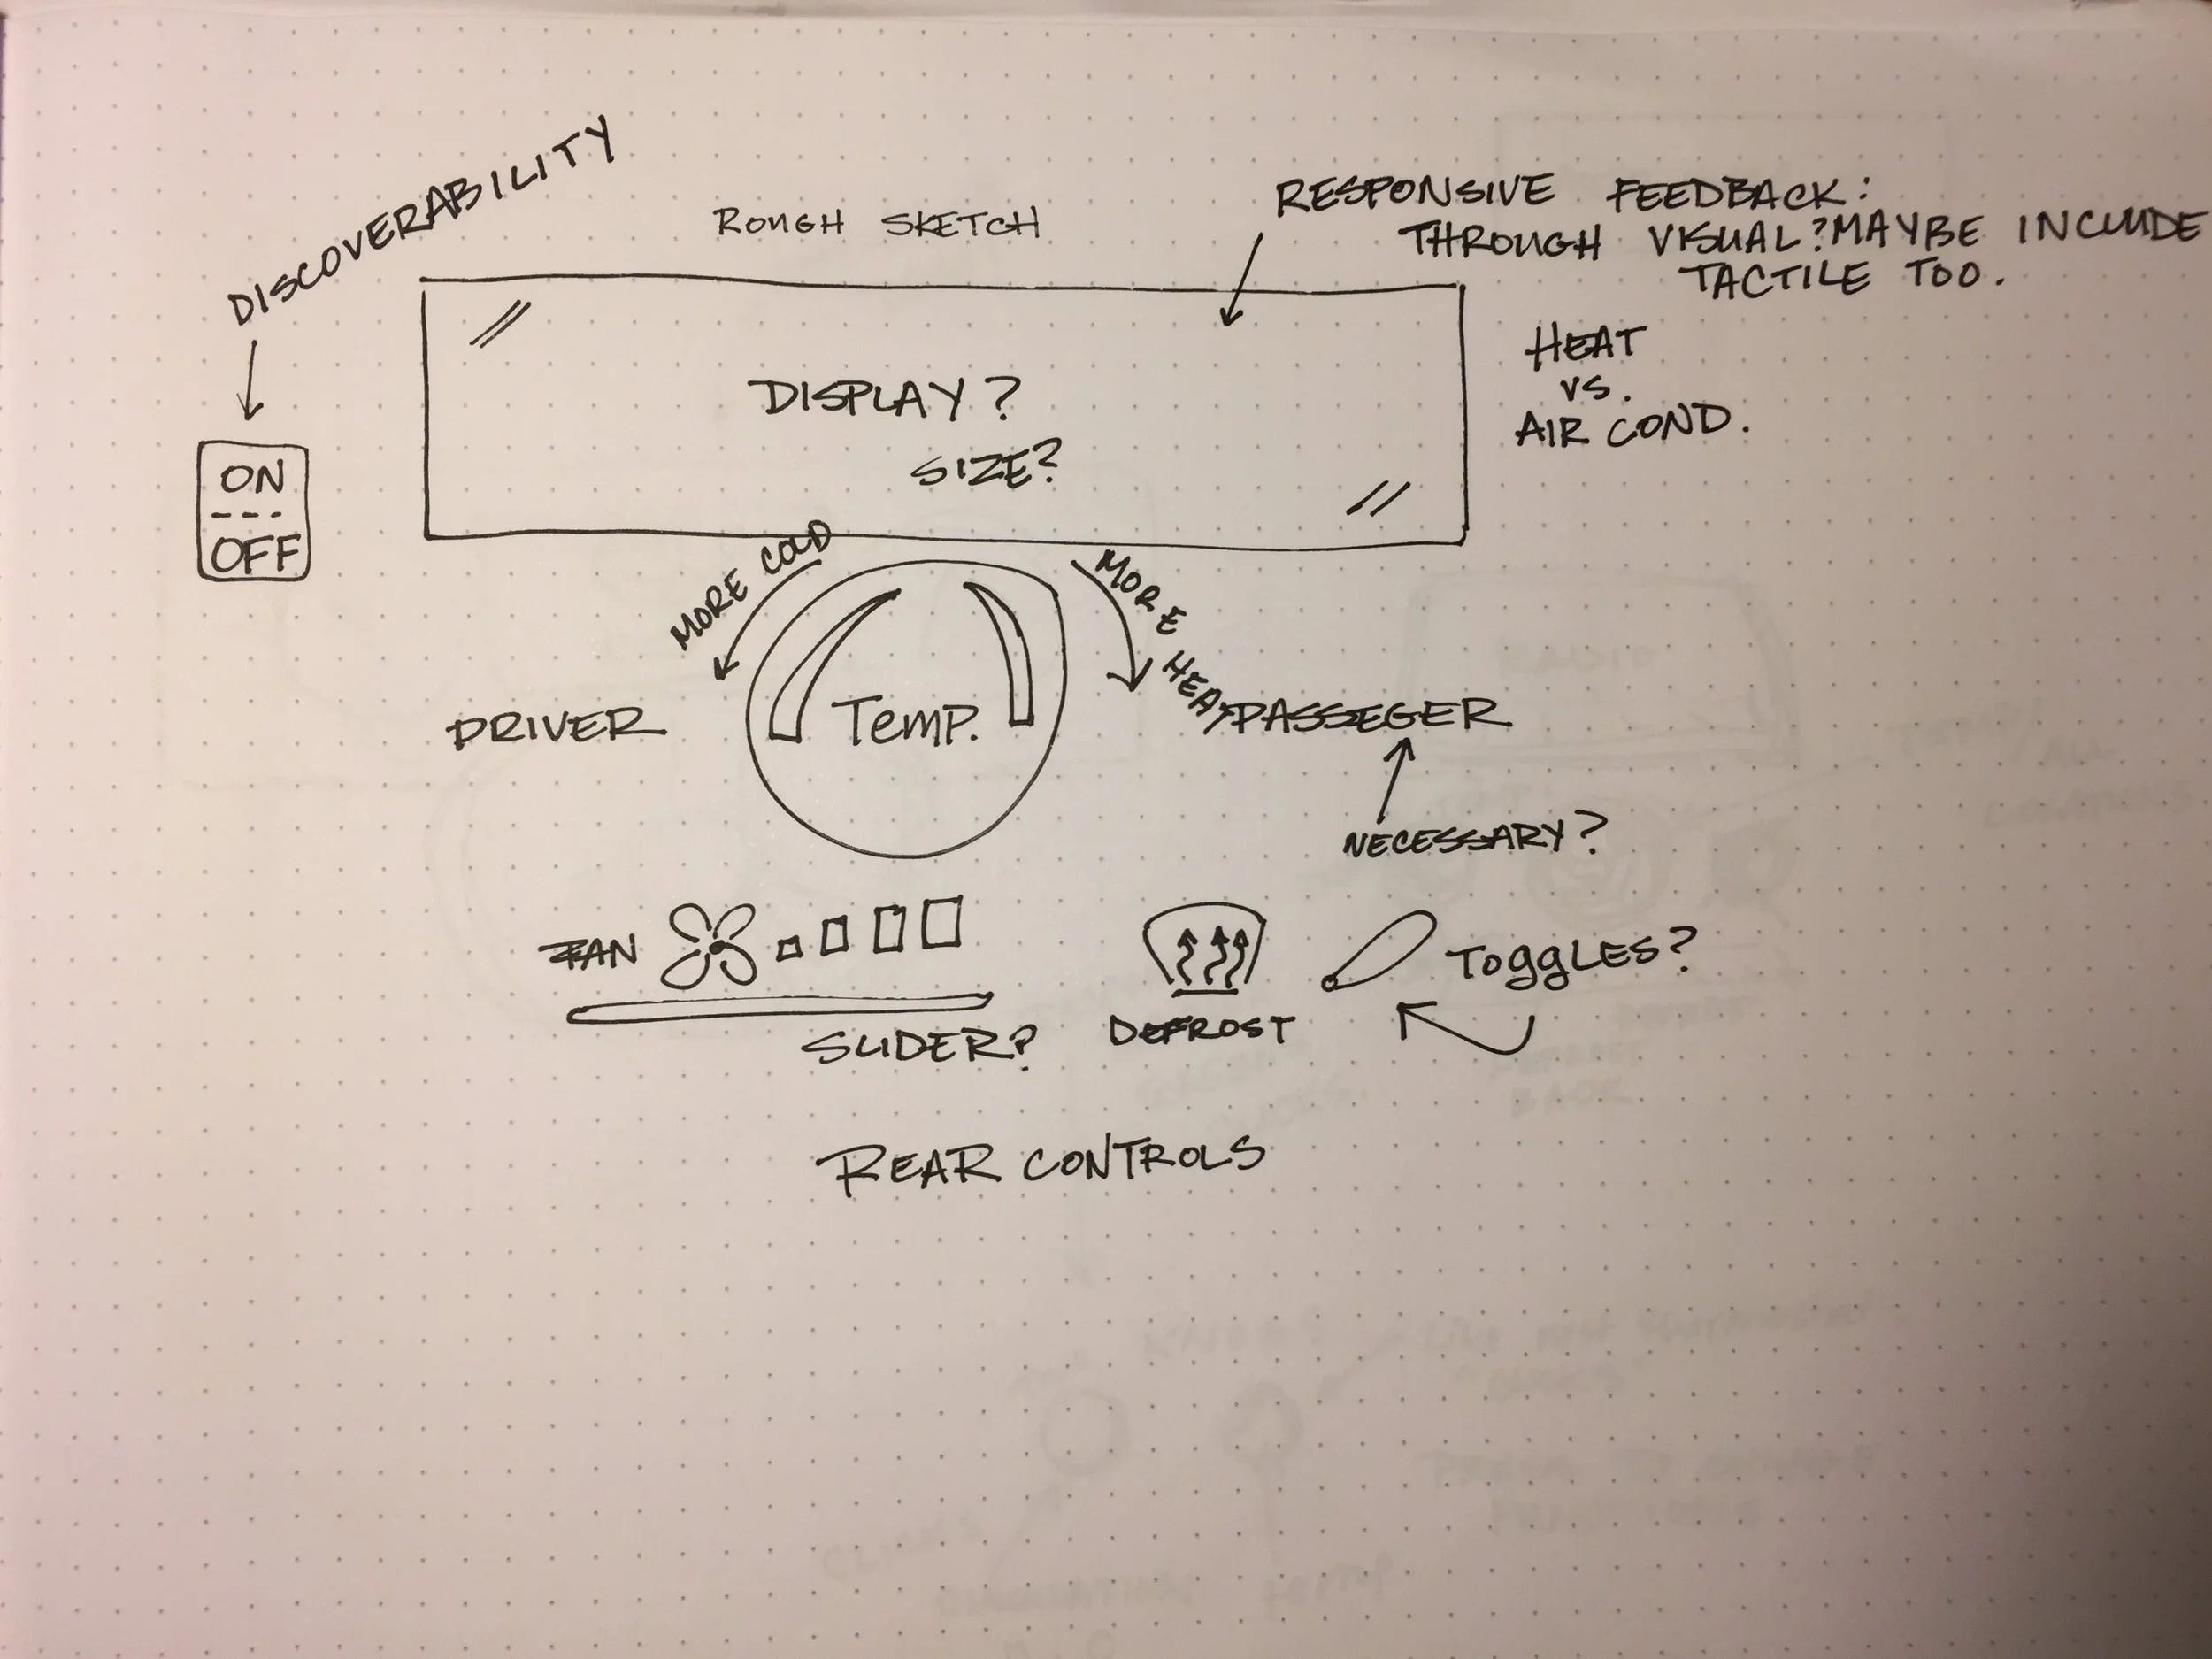 DISCOVERABILITY
ROUGH SKETCH
RESPONSIVE FEEDBACK:
THROUGH VISUAL? MAYBE INCLUDE
TACTILE TOO.
HEAT
VS.
AIR COND.
DISPLAY?
SIZE?
ON
OFF
MORE COLD
MORE HEAT
DRIVER
Temp.
PASSEGER
NECESSARY?
FAN
SLIDER?
DEFROST
TOggLES?
REAR CONTROLS